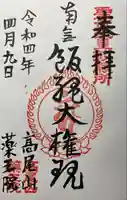 奉拝
南無
飯縄大権現
高尾山
薬王院
令和四年
四月九日